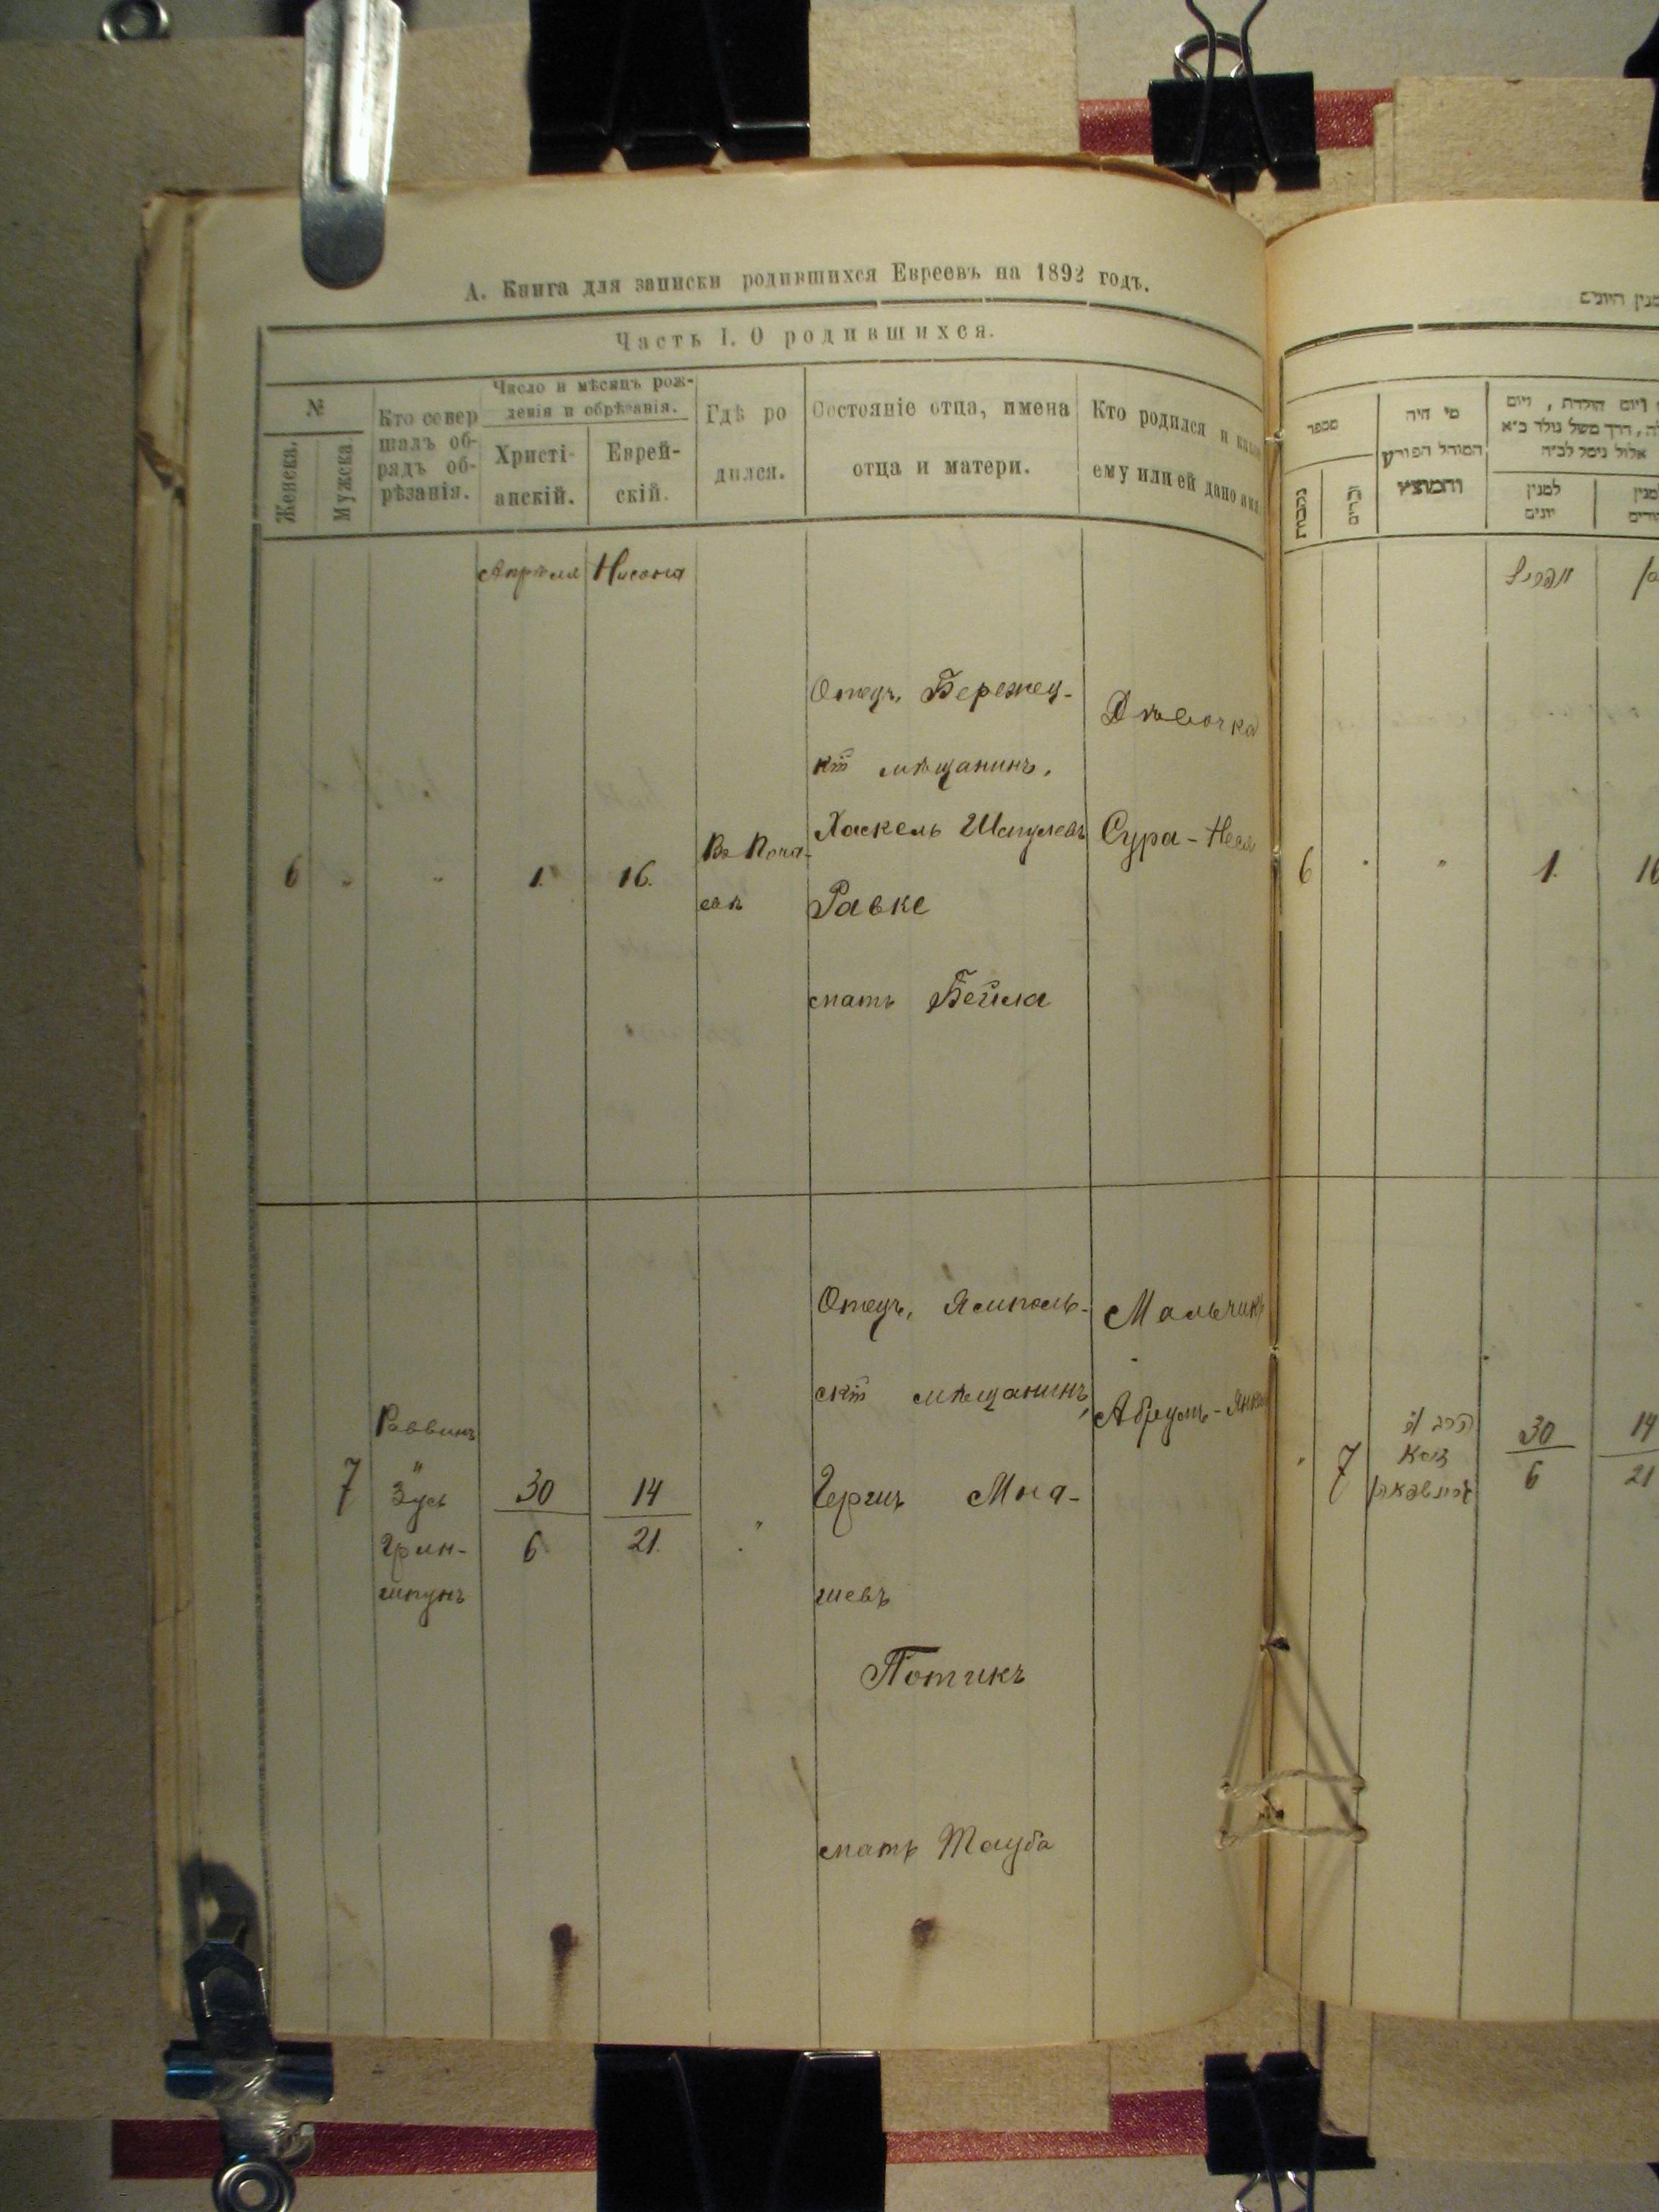 А. Книга для записки родившихся Евреевъ на 1892 годъ.
Часть I. О родившихся.
№
Женска.
Мужска
Кто совер
шалъ об-
рядъ об-
рѣзанія.
Число и мѣсяцъ рож-
денія и обрѣзанія.
Христі-
анскій.
Еврей-
скій.
Гдѣ ро
дился.
Состояніе отца, имена
отца и матери.
Кто родился и какое
ему или ей дано имя.
Апрѣля
Нисона
6
"
"
1.
16.
Въ Поча-
евѣ
Отецъ, Бережец-
кій мѣщанинъ,
Хаскель Шмулевъ
Равке
мать Бейла
Дѣвочка
Сура-Неся
7
Раввинъ
Зусь
Грин-
шпунъ
30
6
14
21.
"
Отецъ, Ямполь-
скій мѣщанинъ,
Гершъ Мна-
шевъ
Потикъ
мать Тауба
Мальчикъ
Абрумъ-
מספר
נקבות
זכרים
מי היה
המוהל הפורע
והמוצץ
למנין
יונים
אפריל
6
"
1.
16
"
7
30
6
14
21